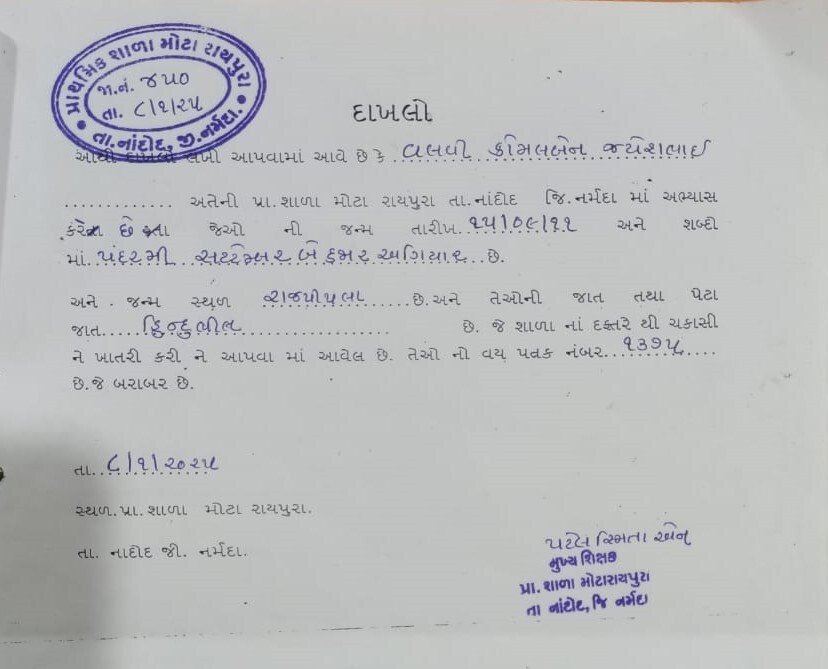 પ્રાથમિક શાળા મોટા રાયપુરા
જા.નં. ૪૫૦
તા. ૮/૧/૨૫
તા.નાંદોદ, જી.નર્મદા.
દાખલો
આથી દાખલો લખી આપવામાં આવે છે કે વલવી ક્રીમલબેન જયેશભાઈ
............. અત્રેની પ્રા.શાળા મોટા રાયપુરા તા.નાંદોદ જિ.નર્મદા માં અભ્યાસ
કરેલ છે જેઓ ની જન્મ તારીખ.૧૫/૦૯/૧૧ અને શબ્દો
માં.પંદરમી સપ્ટેમ્બર બે હજાર અગિયાર..છે.
અને જન્મ સ્થળ રાજપીપલા......છે.અને તેઓની જાત તથા પેટા
જાત.....હિન્દુભીલ................ છે. જે શાળા નાં દફતરે થી ચકાસી
ને ખાતરી કરી ને આપવા માં આવેલ છે. તેઓ નો વય પત્રક નંબર..૧૩૭૫....
છે.જે બરાબર છે.
તા..૮/૧/૨૦૨૫
સ્થળ.પ્રા.શાળા મોટા રાયપુરા.
તા. નાદોદ જી. નર્મદા.
પટેલ સ્મિતા બેન
મુખ્ય શિક્ષક
પ્રા.શાળા મોટારાયપુરા
તા નાંદોદ, જિ નર્મદા